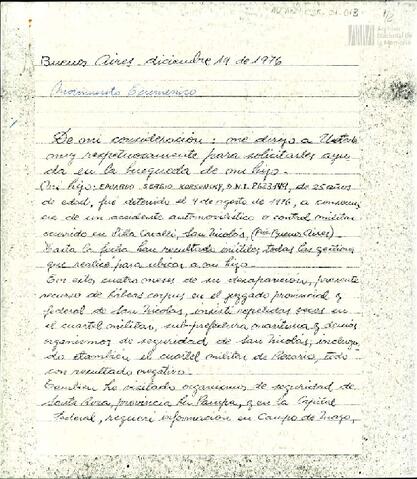 Archivo
Nacional de
la Memoria
Buenos Aires, diciembre 19 de 1976
De mi consideración: me dirijo a Usted
muy respetuosamente para solicitarles ayu
da en la búsqueda de mi hijo.
Mi hijo: EDUARDO SERGIO D.N.I. de 25 años
de edad, fué detenido el 4 de agosto de 1976, a consecuen
cia de un accidente automovilístico o control militar
ocurrido en Villa San Nicolás, (Pcia Buenos Aires).
Hasta la fecha han resultado inútiles todas las gestiones
que realicé para ubicar a mi hijo.
En estos cuatro meses de su desaparición, presenté
recurso de hábeas corpus en el juzgado provincial y
federal de San Nicolás, insistí repetidas veces en
el cuartel militar, sub-prefectura marítima y demás
organismos de seguridad de San Nicolás, incluyen
do también el cuartel militar de Rosario, todo
con resultado negativo.
También he visitado organismos de seguridad de
Santa Rosa, provincia La Pampa, y en la Capital
Federal, requerí información en Campo de Mayo,